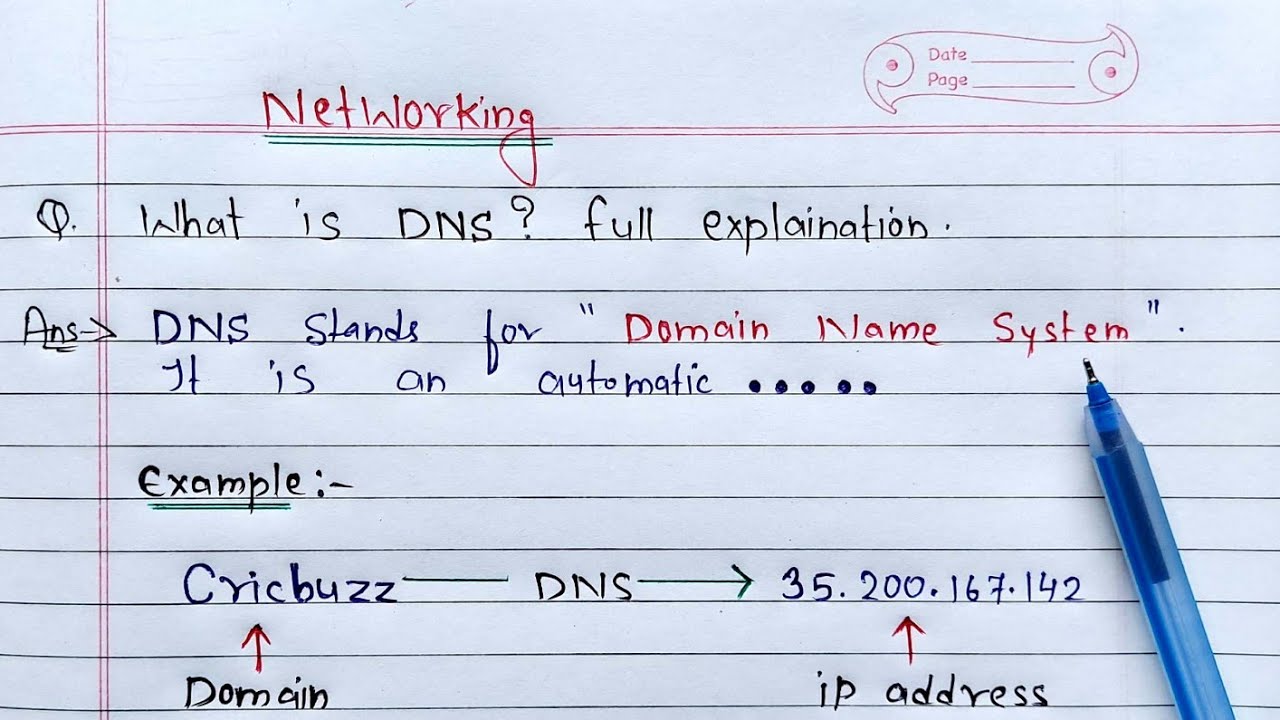 Date
Page
NetWorking
Q. What is DNS? full explaination.
Ans-> DNS stands for "Domain Name System".
It is an automatic •••••
Example:-
Cricbuzz —— DNS ——> 35.200.167.142
↑ ↑
Domain ip address